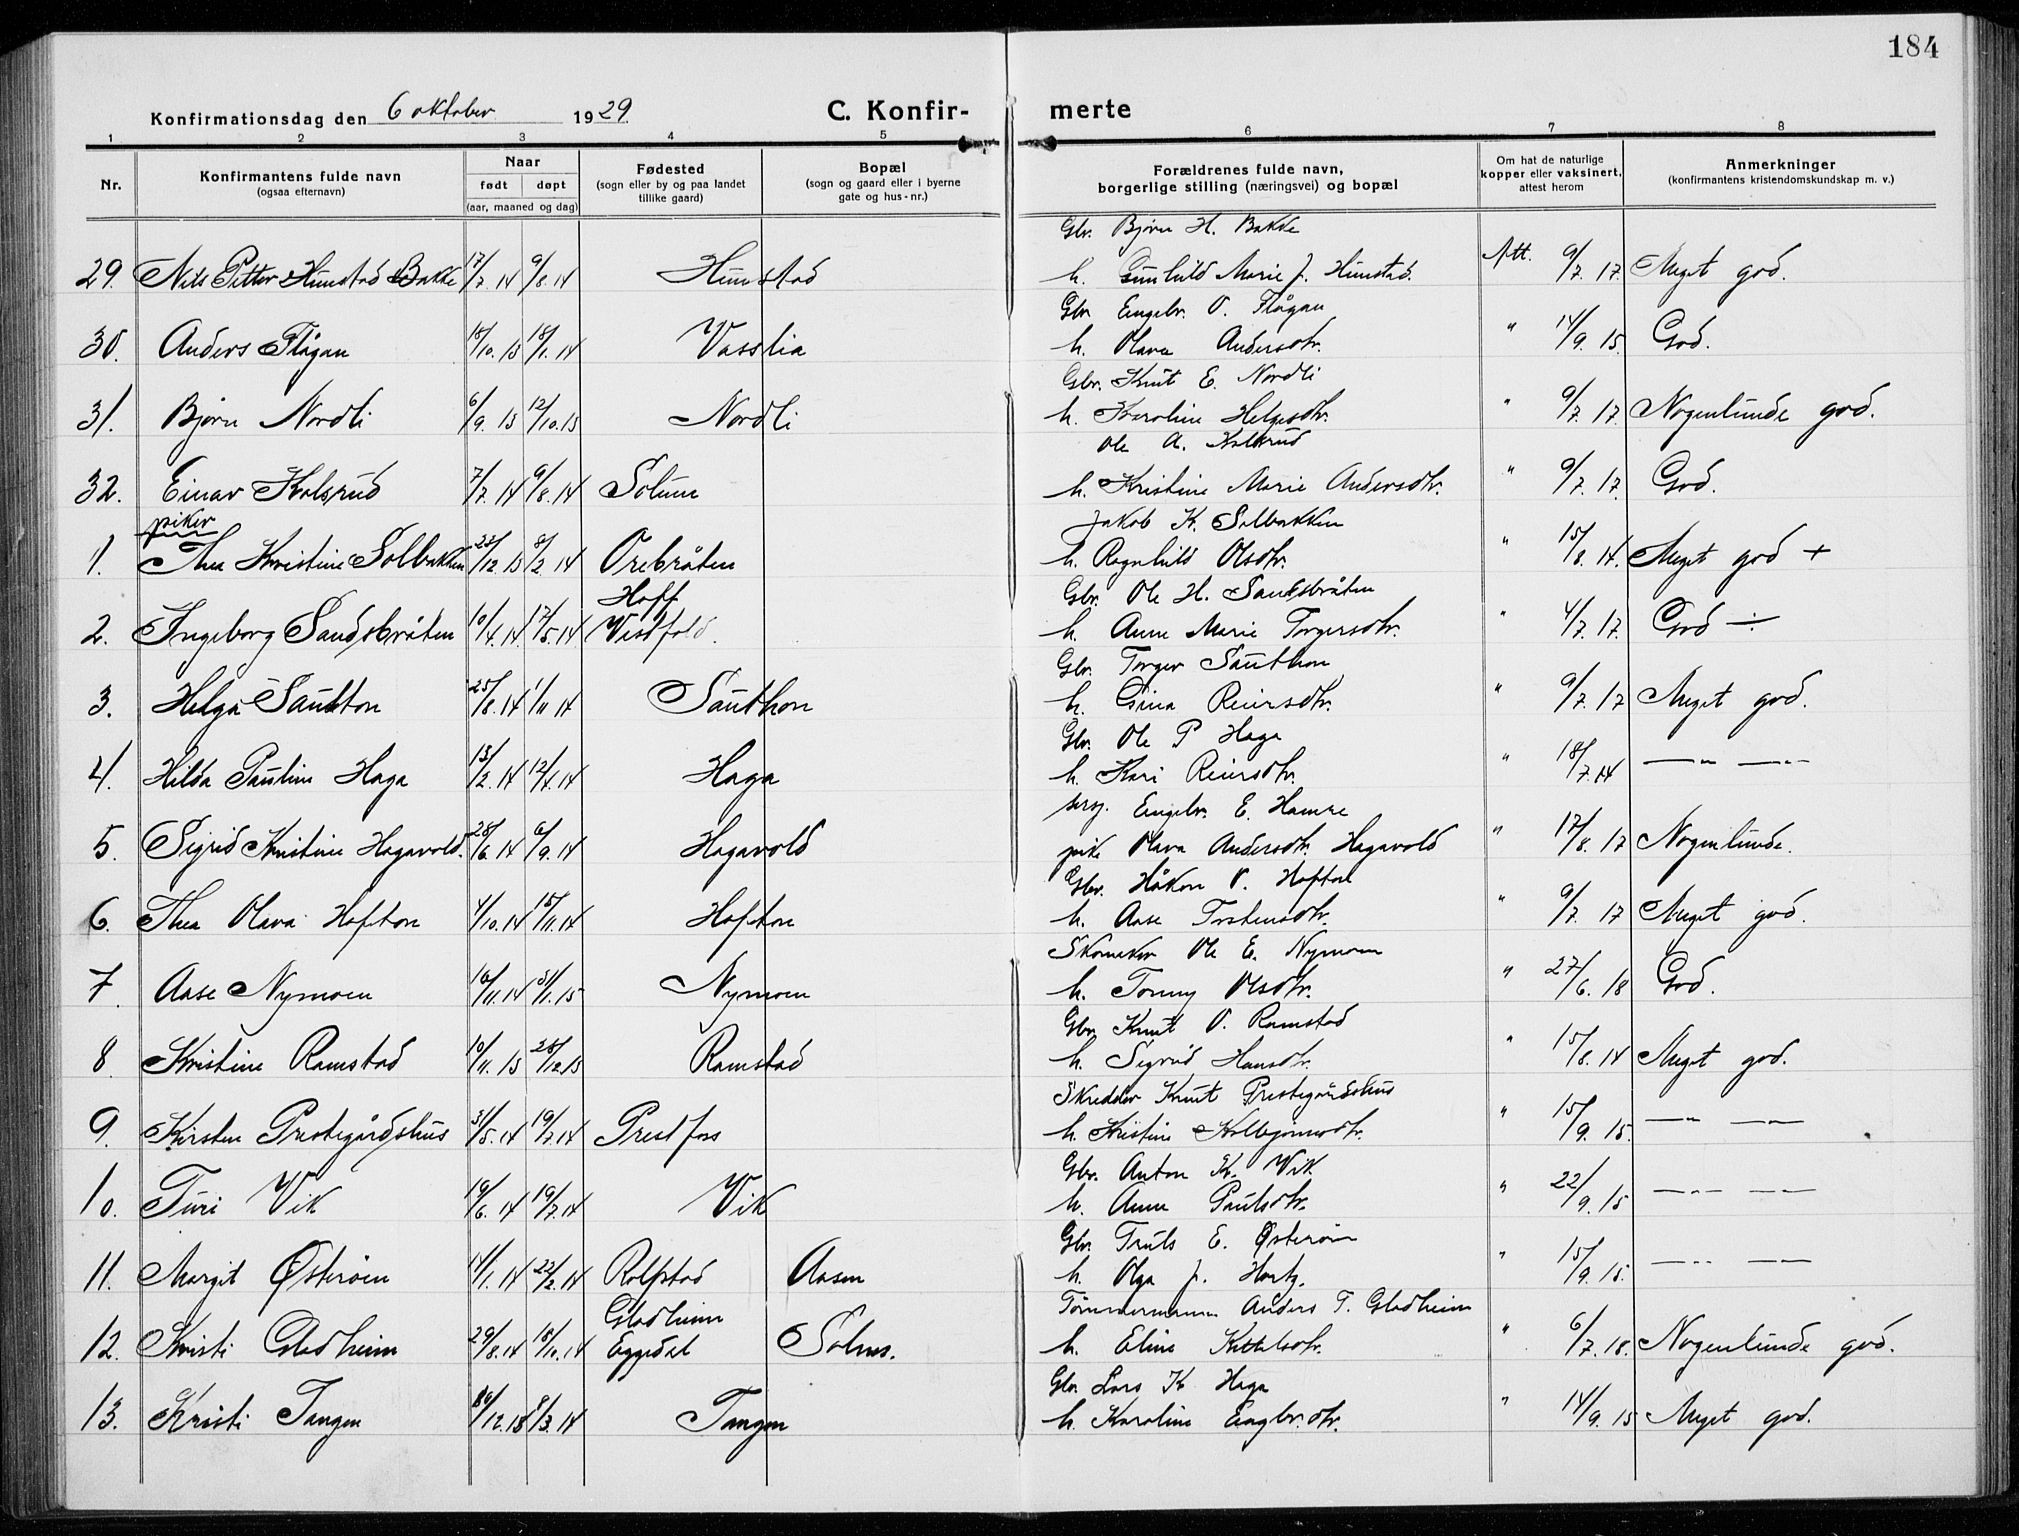 184
Konfirmationsdag den 6 oktober 1929.
C. Konfir- merte
1 2 3 4 5 6 7 8
Nr.
Konfirmantens fulde navn
(ogsaa efternavn)
Naar
født døpt
(aar, maaned og dag)
Fødested
(sogn eller by og paa landet
tillike gaard)
Bopæl
(sogn og gaard eller i byerne
gate og hus-nr.)
Forældrenes fulde navn,
borgerlige stilling (næringsvei) og bopæl
Om hat de naturlige
kopper eller vaksinert,
attest herom
Anmerkninger
(konfirmantens kristendomskundskap m. v.)
Gbr. Bjørn H. Bakke
29. Nils Petter Hunstad Bakke 17/7. 14 9/8. 14 Hunstad h. Gunhild Marie J. Hunstad. Att. 9/7. 17. Meget god.
Gbr. Engebr. O. Flågan
30. Anders Flågan 18/10. 13 18/1. 14 Vasslia h. Olava Andersdtr. " 14/9. 15. God.
Gbr. Knut E. Nordli
31. Bjørn Nordli 6/9. 13 12/10. 13 Nordli h. Karoline Helgesdtr. " 9/7. 17. Nogenlunde god.
Ole A. Kolsrud
32. Einar Kolsrud 7/7. 14 9/8. 14 Solum h. Kristine Marie Andersdtr. " 9/7. 17. God.
piker
Jakob K. Solbakken
1. Thea Kristine Solbakken 22/12. 13 8/2. 14 Orebråten h. Ragnhild Olsdtr. " 15/8. 14. Meget god +
Gbr. Ole H. Sandsbråten
2. Ingeborg Sandsbråten 10/4. 14 17/5. 14 Hoff Vestfold. h. Anne Marie Torgersdtr. " 4/7. 17. God ÷
Gbr. Torger Sauthon
3. Helga Sauthon 25/8. 14 1/11 14 Sauthon h. Gina Reiersdtr. " 9/7. 17 Meget god.
Gbr. Ole P Haga
4. Hilda Pauline Haga 13/2. 14 12/4. 14 Haga h. Kari Reiersdtr. " 18/7. 14 — " —
serg. Engebr. E. Hamre
5. Sigrid Kristine Hagavold. 28/6. 14 6/9. 14 Hagavold pike Olava Andersdtr. Hagavold " 17/8. 17 Nogenlunde.
Gbr. Håkon O. Hofton
6. Thea Olava Hofton 4/10. 14 15/11. 14 Hofton h. Aase Torstensdtr. " 9/7. 17 Meget god.
Skomaker Ole E. Nymoen
7. Aase Nymoen 16/11. 14 31/1. 15 Nymoen h. Tonny Olsdtr. " 27/6. 18 God.
Gbr Knut O. Ramstad
8. Kristine Ramstad 10/11. 13 26/12 13 Ramstad h. Sigrid Hansdtr. " 15/8. 14 Meget god.
Skredder Knut Prestegårdshus
9. Kirsten Prestegårdshus 31/5. 14 19/7. 14 Prestfoss h. Kristine Kolbjørnsdtr. " 15/9. 15. — " —
Gbr. Anton K. Vik
10. Turi Vik 19/6. 14 19/7. 14 Vik h. Anne Paulsdtr. " 22/9. 15 — " —
Gbr. Truls E. Østerøin
11. Margit Østerøien 14/1. 14 22/2. 14 Rolfstad Aasen h. Olga J. Hartz. " 15/9. 15. — " —
Tømmermann Anders T. Gladheim
12. Kristi Gladheim 29/8. 14 18/10. 14 Gladheim Eggedal Solum. h. Eline Kittelsdtr. " 6/7. 18. Nogenlunde god.
Gbr. Lars K Haga
13. Kristi Tangen 30/12. 13 8/3. 14 Tangen h. Karoline Engebr.dtr. " 14/9. 15 Meget god.